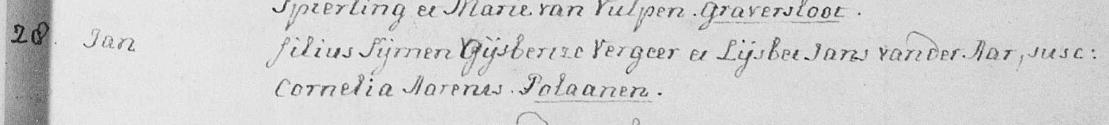 Spierling et Marie van Vulpen. Graversloot.
28. Jan filius Sijmen Gijsbertze Vergeer et Lijsbet Jans vander Aar, susc:
Cornelia Aarents. Polaanen.